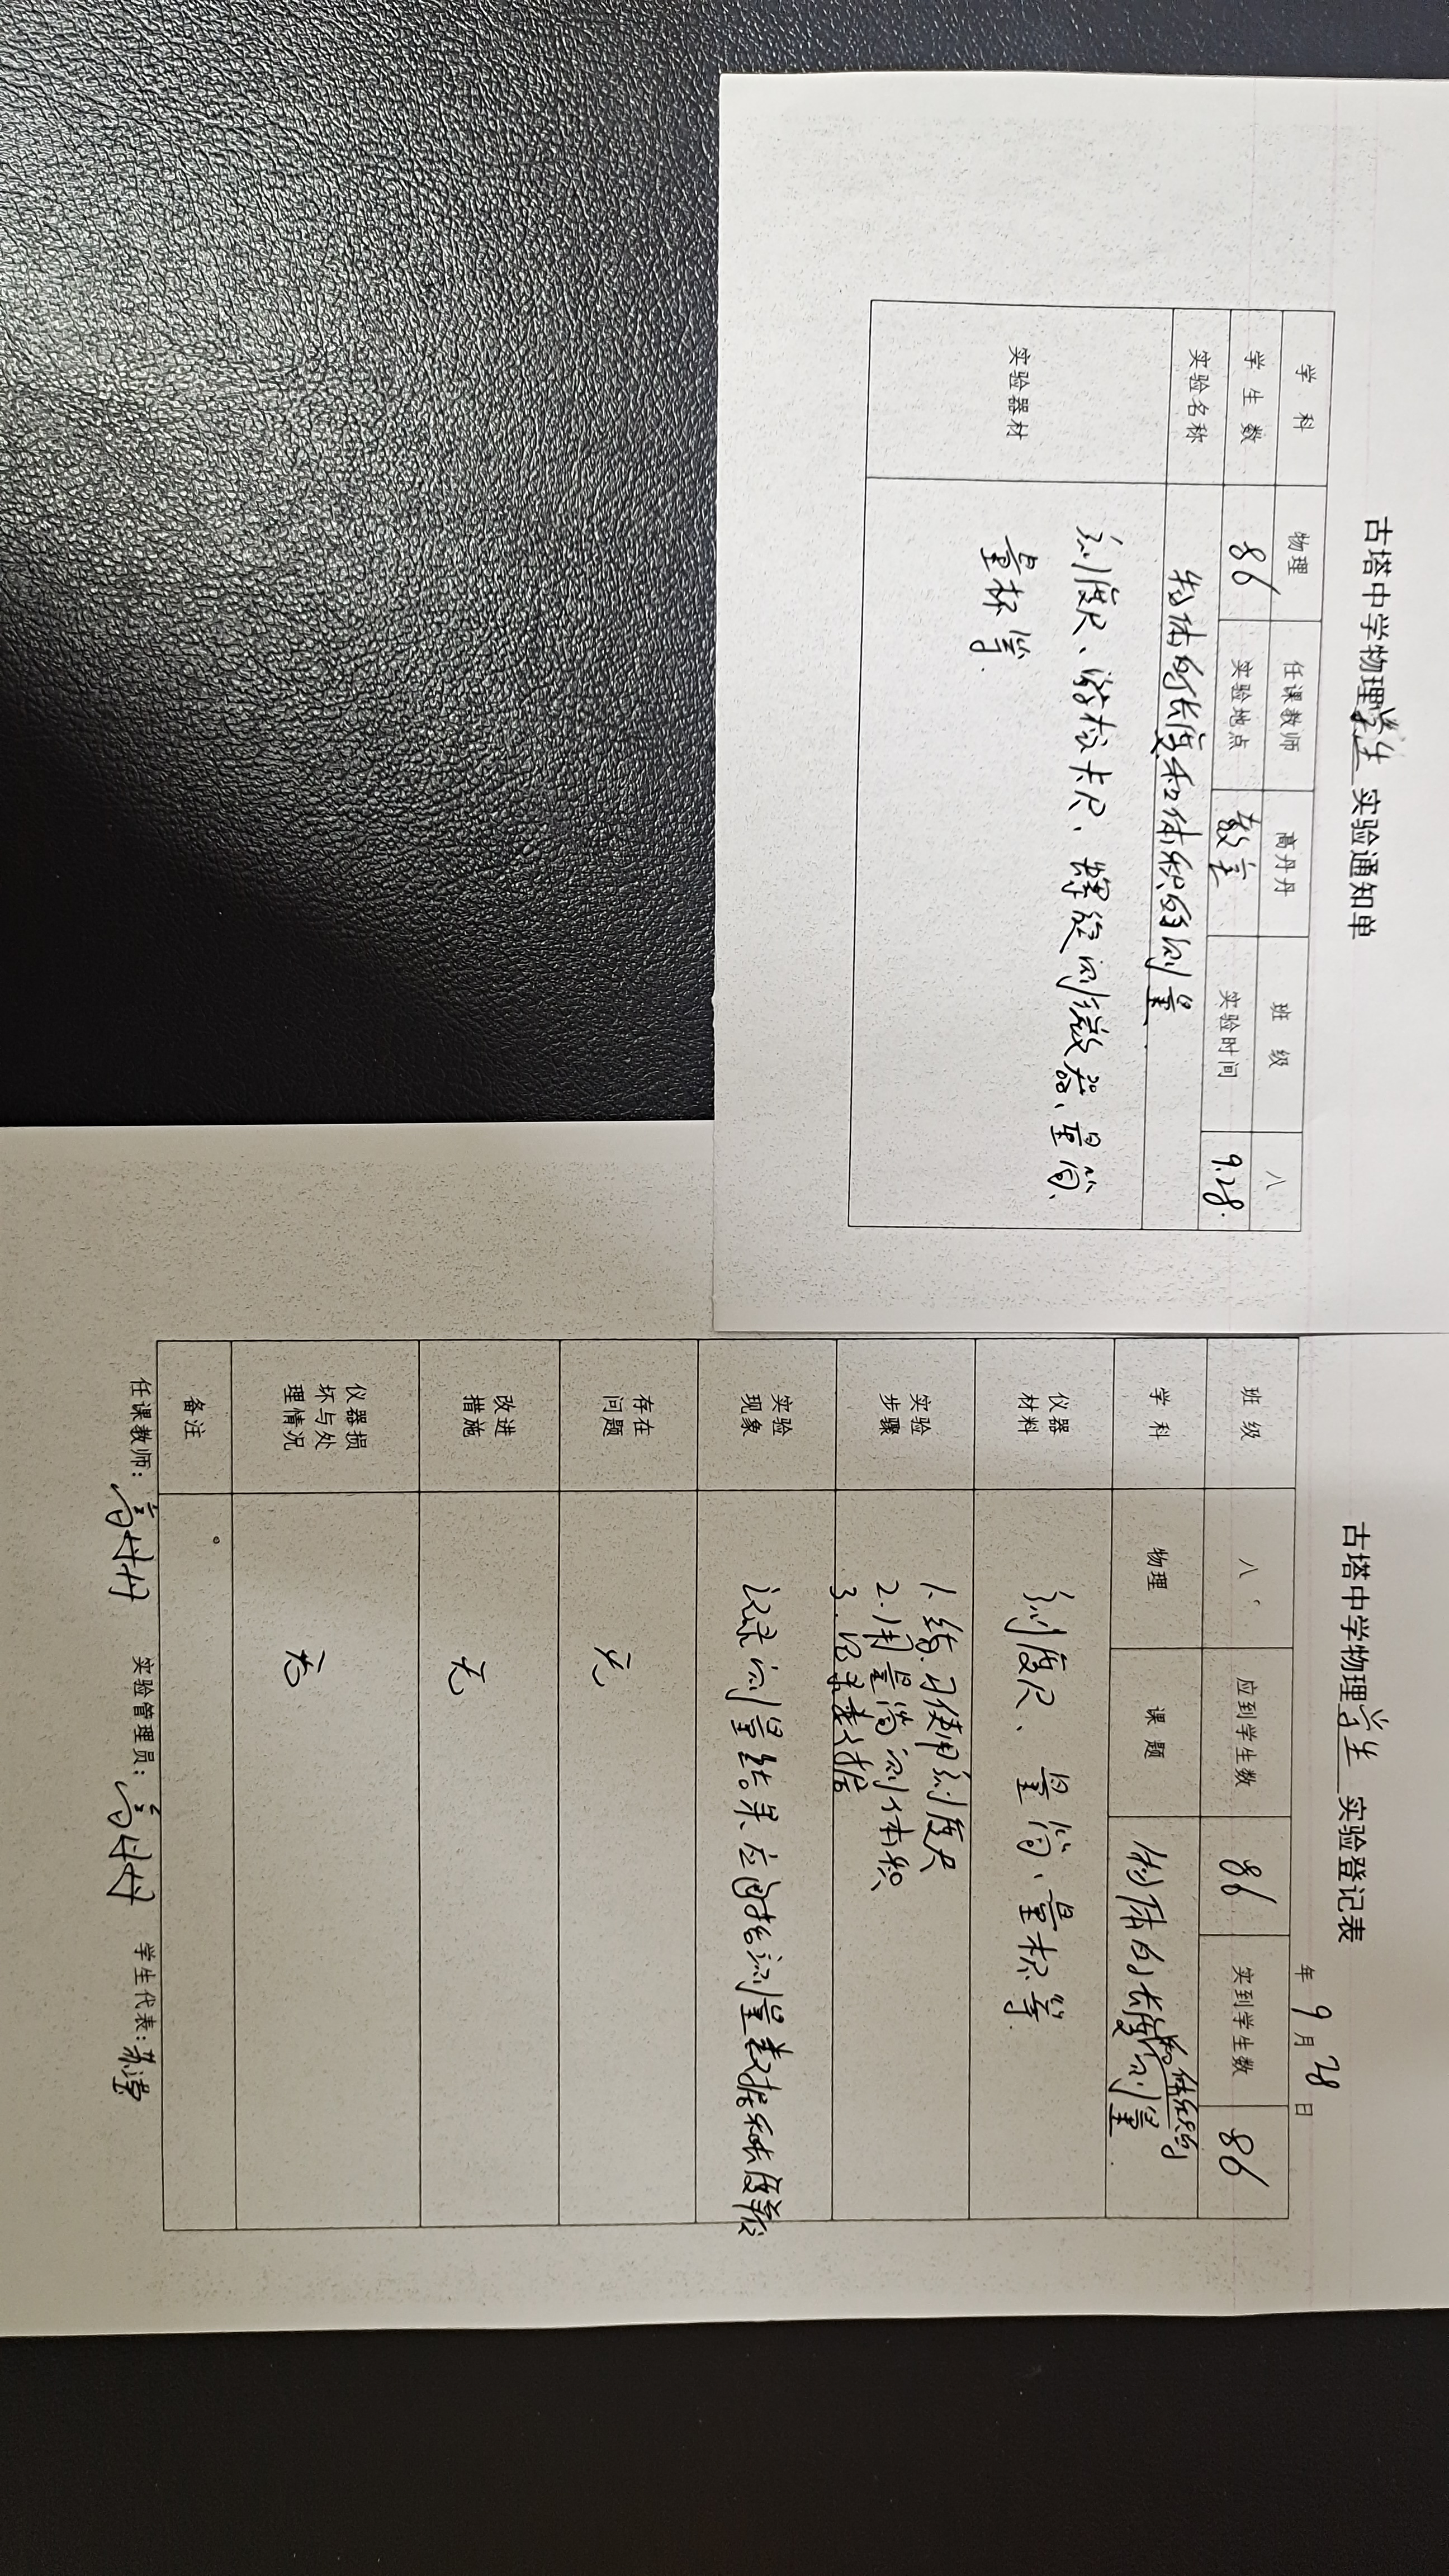 古塔中学物理学生实验通知单
学 科 物理 任课教师 高丹丹 班 级 八
学 生 数 86 实验地点 教室 实验时间 9.28.
实验名称 物体的长度和体积的测量.
实验器材 刻度尺、游标卡尺、螺旋测微器、量筒、
量杯等.
古塔中学物理学生实验登记表
年 9 月 28 日
班 级 八 应到学生数 86 实到学生数 86
学 科 物理 课 题 物体的长度和体积的测量
仪器
材料 刻度尺、量筒、量杯等.
实验
步骤 1.练习使用刻度尺
2.用量筒测体积
3.记录数据
实验
现象 记录测量结果应包括测量数据和长度单位
存在
问题 无
改进
措施 无
仪器损
坏与处
理情况 无
备注
任课教师：高丹丹 实验管理员：高丹丹 学生代表：苏